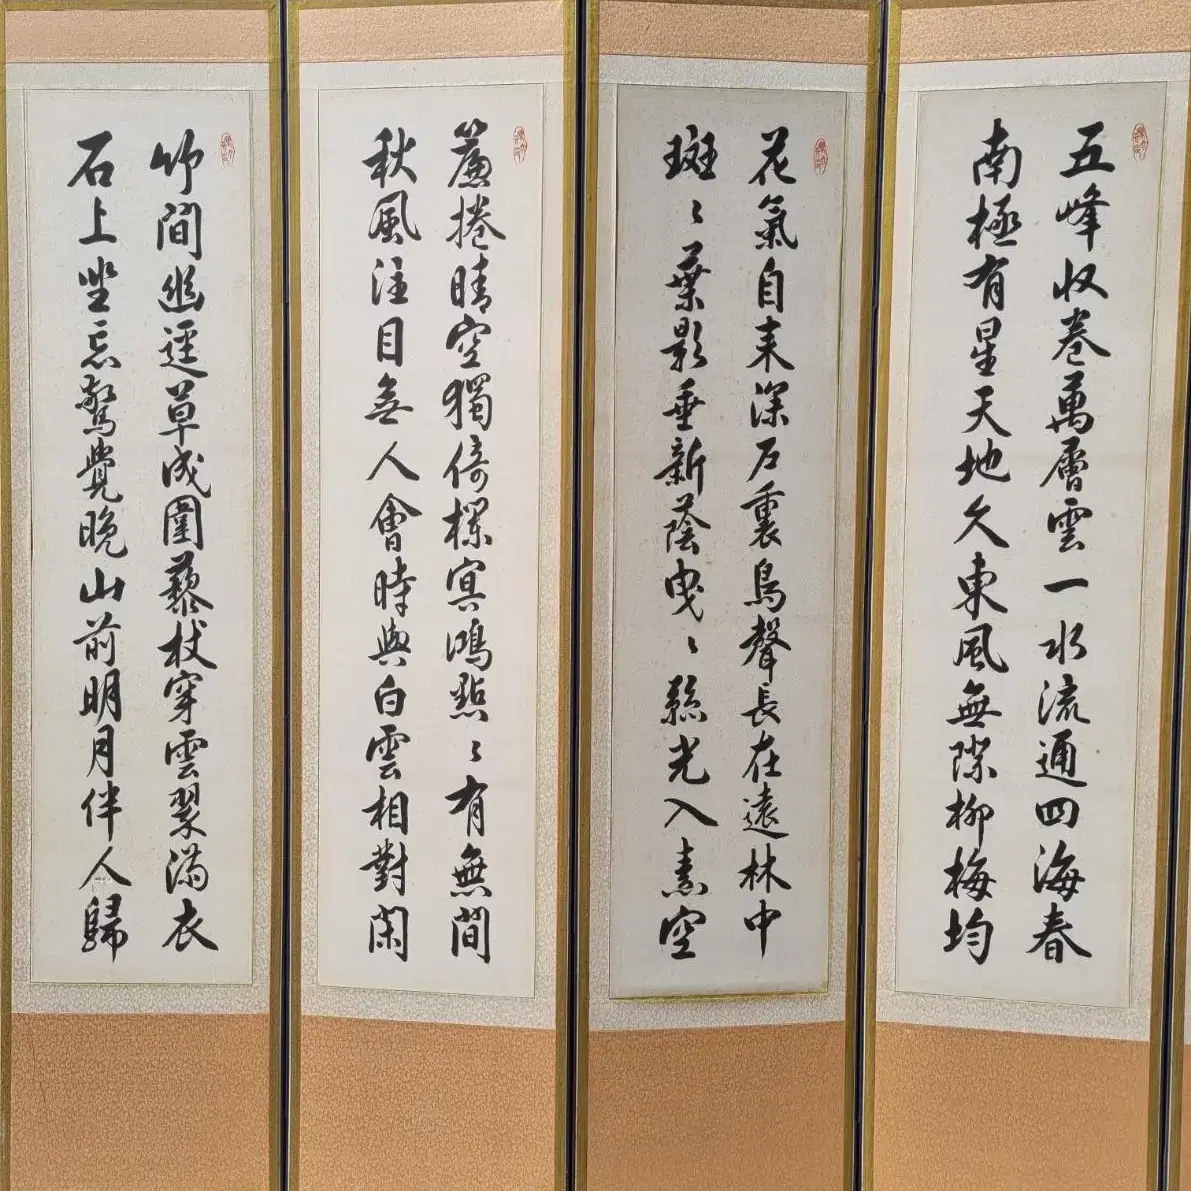 五峰收卷萬層雲一水流通四海春
南極有星天地久東風無隙柳梅均
花氣自来深戶裏鳥聲長在遠林中
斑〻葉影垂新蔭曳〻絲光入素空
簾捲晴空獨倚欄冥鴻點〻有無間
秋風注目無人會時與白雲相對閑
竹間幽逕草成圍藜杖穿雲翠滿衣
石上坐忘驚覺晚山前明月伴人歸